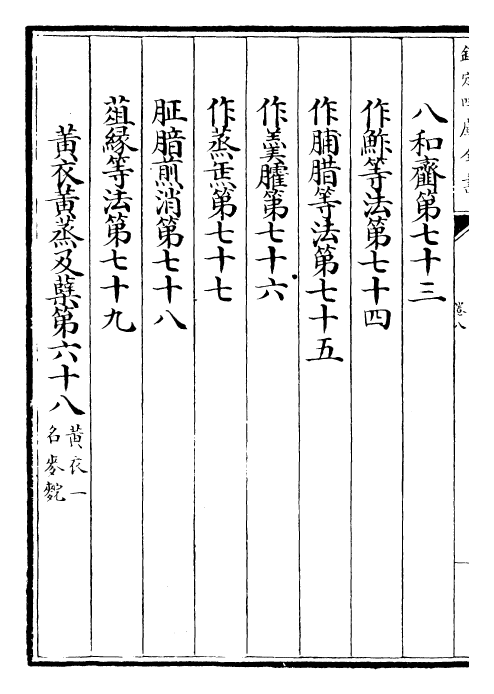 欽定四庫全書
卷八
八和齏第七十三
作鮓等法第七十四
作脯腊等法第七十五
作羹臛第七十六
作蒸缹第七十七
𦙫腤煎消第七十八
葅縁等法第七十九
黃衣黃蒸及糵第六十八 黃衣一
名麥䴷